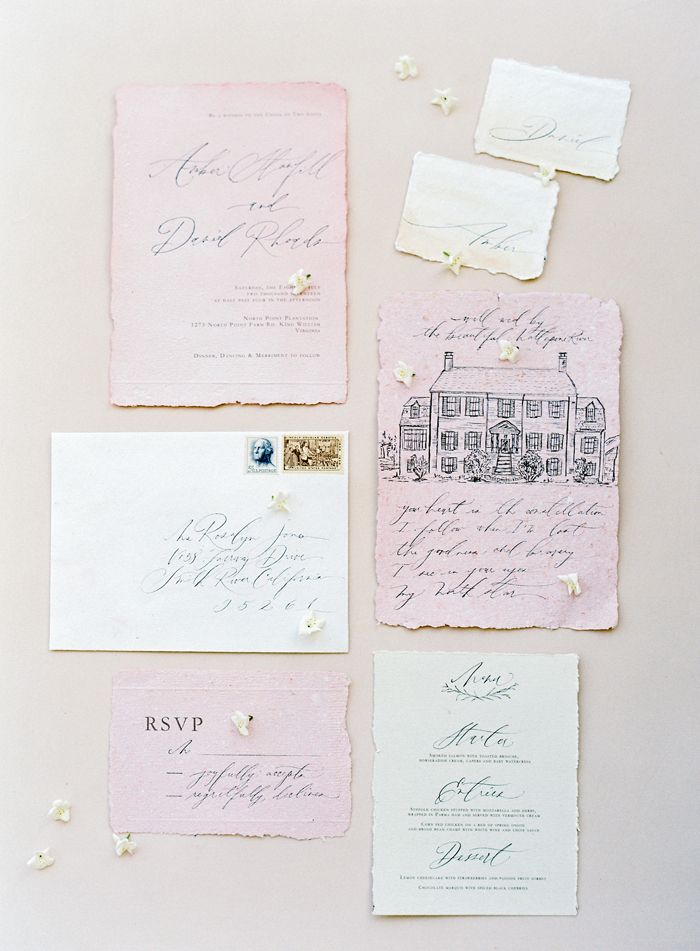 Be a witness to the Union of Two Souls
Amber
and
David Rhoads
Saturday, the
July
two thousand
at half past four in the afternoon
North Point Plantation
1273 North Point Farm Rd. King William
Virginia
Dinner, Dancing & Merriment to follow
David
Amber
will wed by
the beautiful River
your heart is the constellation
I follow when I'm lost
the goodness and bravery
I see in your eyes
my North star
Rosalyn
Drive
Smith River California
RSVP
M
joyfully accepts
regretfully declines
Menu
Starter
Smoked salmon with toasted brioche,
horseradish cream, capers and baby watercress
Entrées
Suffolk chicken stuffed with mozzarella and herbs,
wrapped in Parma ham and served with vermouth cream
Corn fed chicken on a bed of spring onion
and broad bean champ with white wine and chive sauce
Dessert
Lemon cheesecake with strawberries and passion fruit sorbet
Chocolate marquis with spiced black cherries